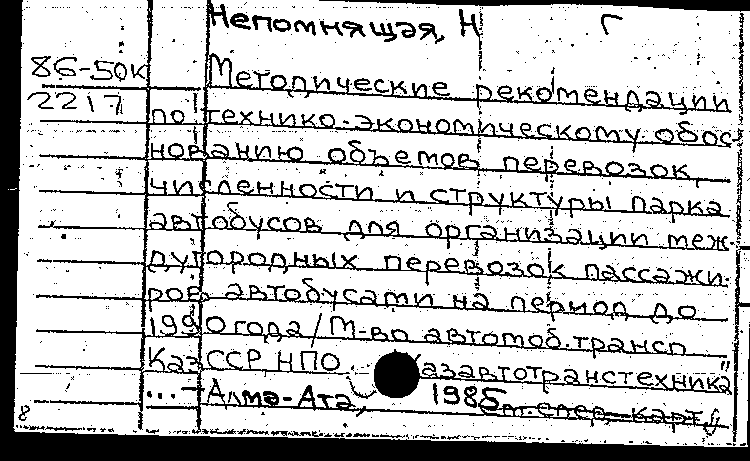 Непомнящая, Н Г
86-50к
2217
Методические рекомендации
по технико-экономическому обос-
нованию объемов перевозок,
численности и структуры парка
автобусов для организации меж-
дугородных перевозок пассажи-
ров автобусами на период до
1990 года / М-во автомоб. трансп
КазССР, НПО азавтотранстехника"
...- Алма-Ата, 1985
карту
8